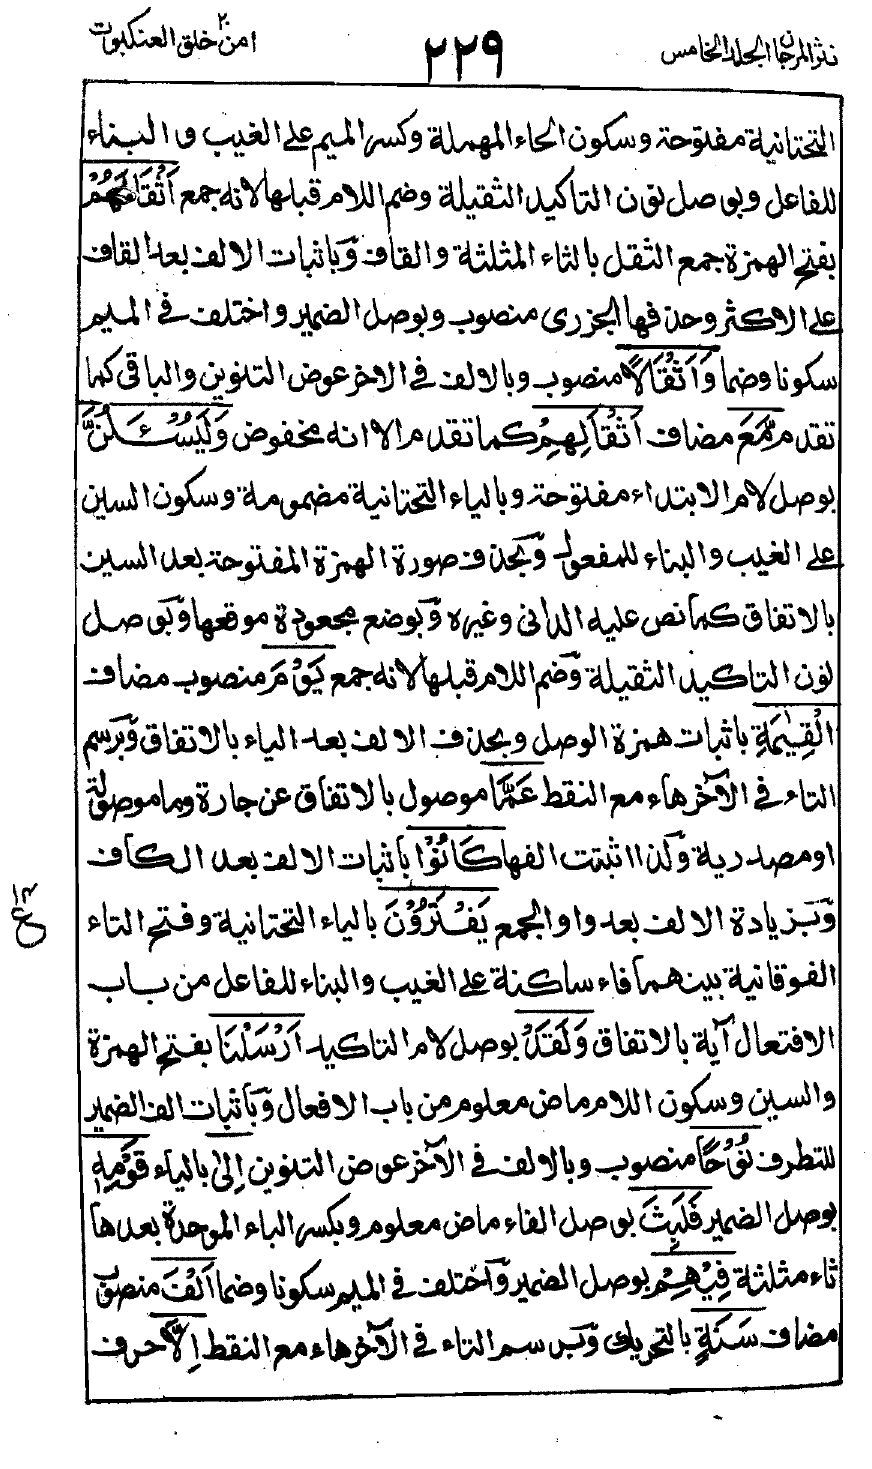 نثر المرجان الجلد الخامس
٢٢٩
امن خلق ٢٠ العنكبوت
التحتانية مفتوحة وسكون الحاء المهملة وكسر الميم على الغيب و البناء
للفاعل وبوصل نون التاكيد الثقيلة وضم اللام قبلها لانه جمع أَثْقَالَهُمْ
بفتح الهمزة جمع الثقل بالثاء المثلثة والقاف وباثبات الالف بعد القاف
على الاكثر وحذفها الجزرى منصوب وبوصل الضمير واختلف فى الميم
سكونا وضما وَاَثْقَالًا منصوب وبالالف فى الاخر عوض التنوين والباقى كما
تقدم مَّعَ مضاف اَثْقَالِهِمْ كما تقدم الا انه مخفوض وَلَيُسْـَٔلُنَّ
بوصل لام الابتداء مفتوحة وبالياء التحتانية مضمومة وسكون السين
على الغيب والبناء للمفعول وبحذف صورة الهمزة المفتوحة بعد السين
بالاتفاق كما نص عليه الدانى وغيره وبوضع مجعودة موقعها وبوصل
نون التاكيد الثقيلة وضم اللام قبلها لانه جمع يَوْمَ منصوب مضاف
الْقِيٰمَةِ باثبات همزة الوصل وبحذف الالف بعد الياء بالاتفاق وبرسم
التاء فى الآخر هاء مع النقط عَمَّا موصول بالاتفاق عن جارة وما موصولة
او مصدرية ولذا اثبتت الفها كَانُوْا باثبات الالف بعد الكاف
وبزيادة الالف بعد واو الجمع يَفْتَرُوْنَ بالياء التحتانية وفتح التاء
الفوقانية بينهما فاء ساكنة على الغيب والبناء للفاعل من باب
الافتعال آية بالاتفاق وَلَقَدْ بوصل لام التاكيد اَرْسَلْنَا بفتح الهمزة
والسين وسكون اللام ماض معلوم من باب الافعال وباثبات الف الضمير
للتطرف نُوْحًا منصوب وبالالف فى الآخر عوض التنوين اِلىٰ بالياء قَوْمِهٖ
بوصل الضمير فَلَبِثَ بوصل الفاء ماض معلوم وبكسر الباء الموحدة بعدها
ثاء مثلثة فِيْهِمْ بوصل الضمير واختلف فى الميم سكونا وضما اَلْفَ منصوب
مضاف سَنَةٍ بالتحريك وبرسم التاء فى الآخر هاء مع النقط اِلَّا حرف